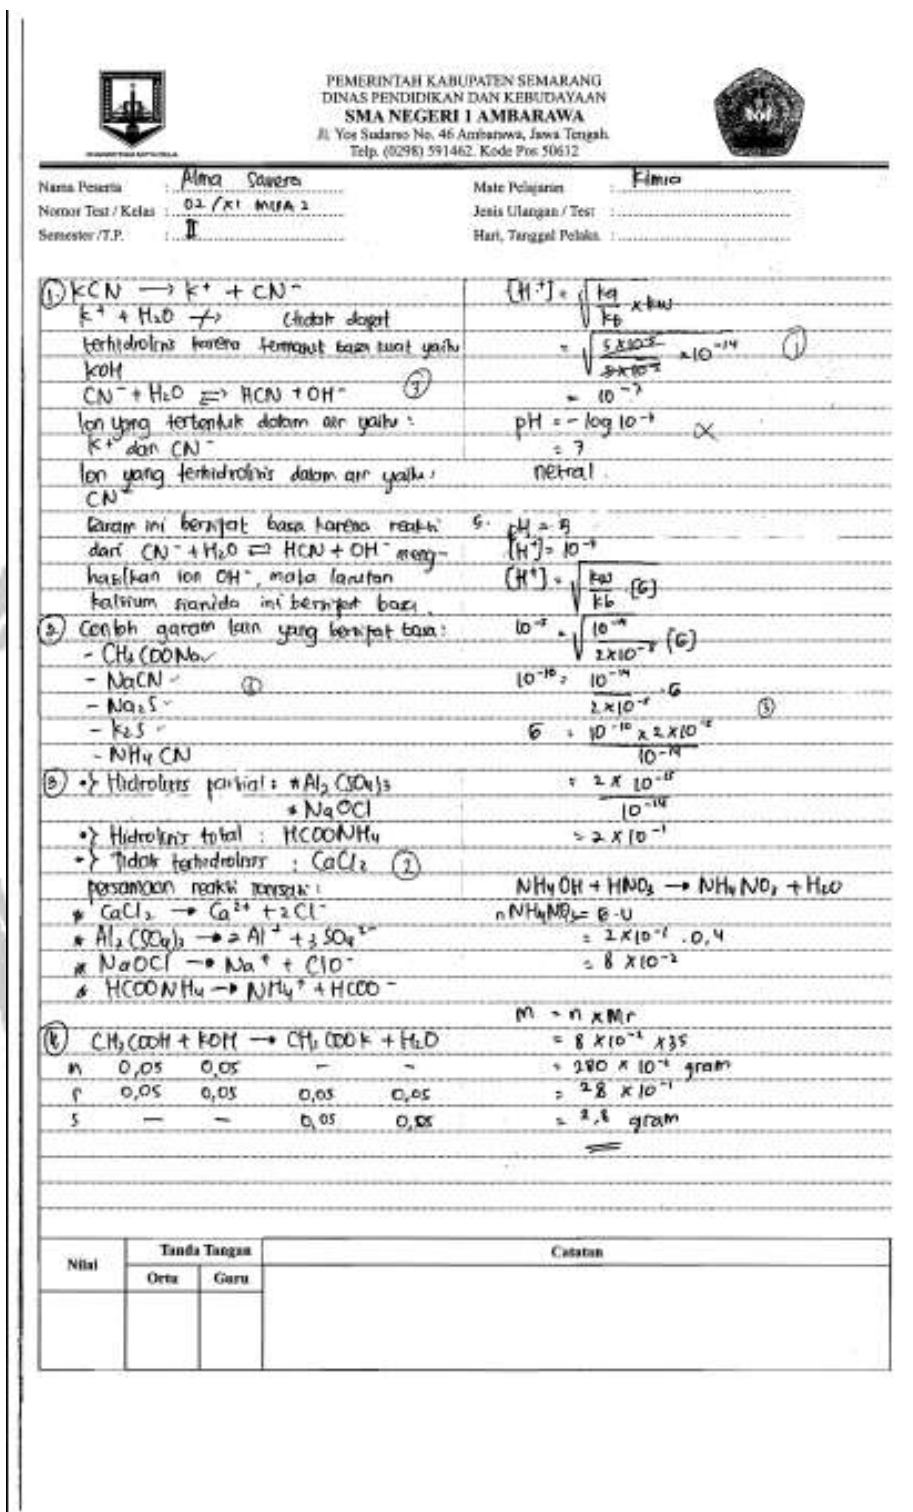 PEMERINTAH KABUPATEN SEMARANG
DINAS PENDIDIKAN DAN KEBUDAYAAN
SMA NEGERI 1 AMBARAWA
Jl. Yos Sudarso No. 46 Ambarawa, Jawa Tengah
Telp. (0298) 591462. Kode Pos 50612
Nama Peserta : Alma Savera
Nomor Test / Kelas : 02 / XI MIPA 2
Semester /T.P. : II
Mate Pelajaran : Kimia
Jenis Ulangan / Test :
Hari, Tanggal Pelaks. :
① KCN → K+ + CN-
K+ + H2O ↛ (tidak dapat
terhidrolisis karena termasuk basa kuat yaitu
KOH
CN- + H2O ⇌ HCN + OH- ③
Ion yang terbentuk dalam air yaitu :
K+ dan CN-
Ion yang terhidrolisis dalam air yaitu :
CN-
Garam ini bersifat basa karena reaksi
dari CN- + H2O ⇌ HCN + OH- meng-
hasilkan ion OH-, maka larutan
kalsium sianida ini bersifat basa.
② Contoh garam lain yang bersifat basa :
- CH3COONa
- NaCN
- Na2S
- K2S
- NH4CN
③ •} Hidrolisis parsial : * Al2(SO4)3
* NaOCl
•} Hidrolisis total : HCOONH4
•} Tidak terhidrolisis : CaCl2 ②
persamaan reaksi ionisasi :
* CaCl2 → Ca2+ + 2Cl-
* Al2(SO4)3 → 2Al+ + 3SO4 2-
* NaOCl → Na+ + ClO-
* HCOONH4 → NH4+ + HCOO-
④ CH3COOH + KOH → CH3COOK + H2O
m 0,05 0,05 - -
r 0,05 0,05 0,05 0,05
s - - 0,05 0,05
[H+] = √ka/kb x kw
= √5x10-5/5x10-5 x 10-14 ①
= 10-7
pH = - log 10-7
= 7
netral.
5. pH = 5
[H+] = 10-5
[H+] = √kw/kb . [G]
10-5 = √10-14/2x10-5 [G]
10-10 = 10-14/2x10-5 . G
G = 10-10 x 2x10-5/10-14 ③
= 2 x 10-15/10-14
= 2 x 10-1
NH4OH + HNO3 → NH4NO3 + H2O
n NH4NO3 = G . V
= 2x10-1 . 0,4
= 8 x10-2
m = n x Mr
= 8 x10-2 x35
= 280 x 10-2 gram
= 28 x 10-1
= 2,8 gram
Nilai
Tanda Tangan
Ortu Guru
Catatan